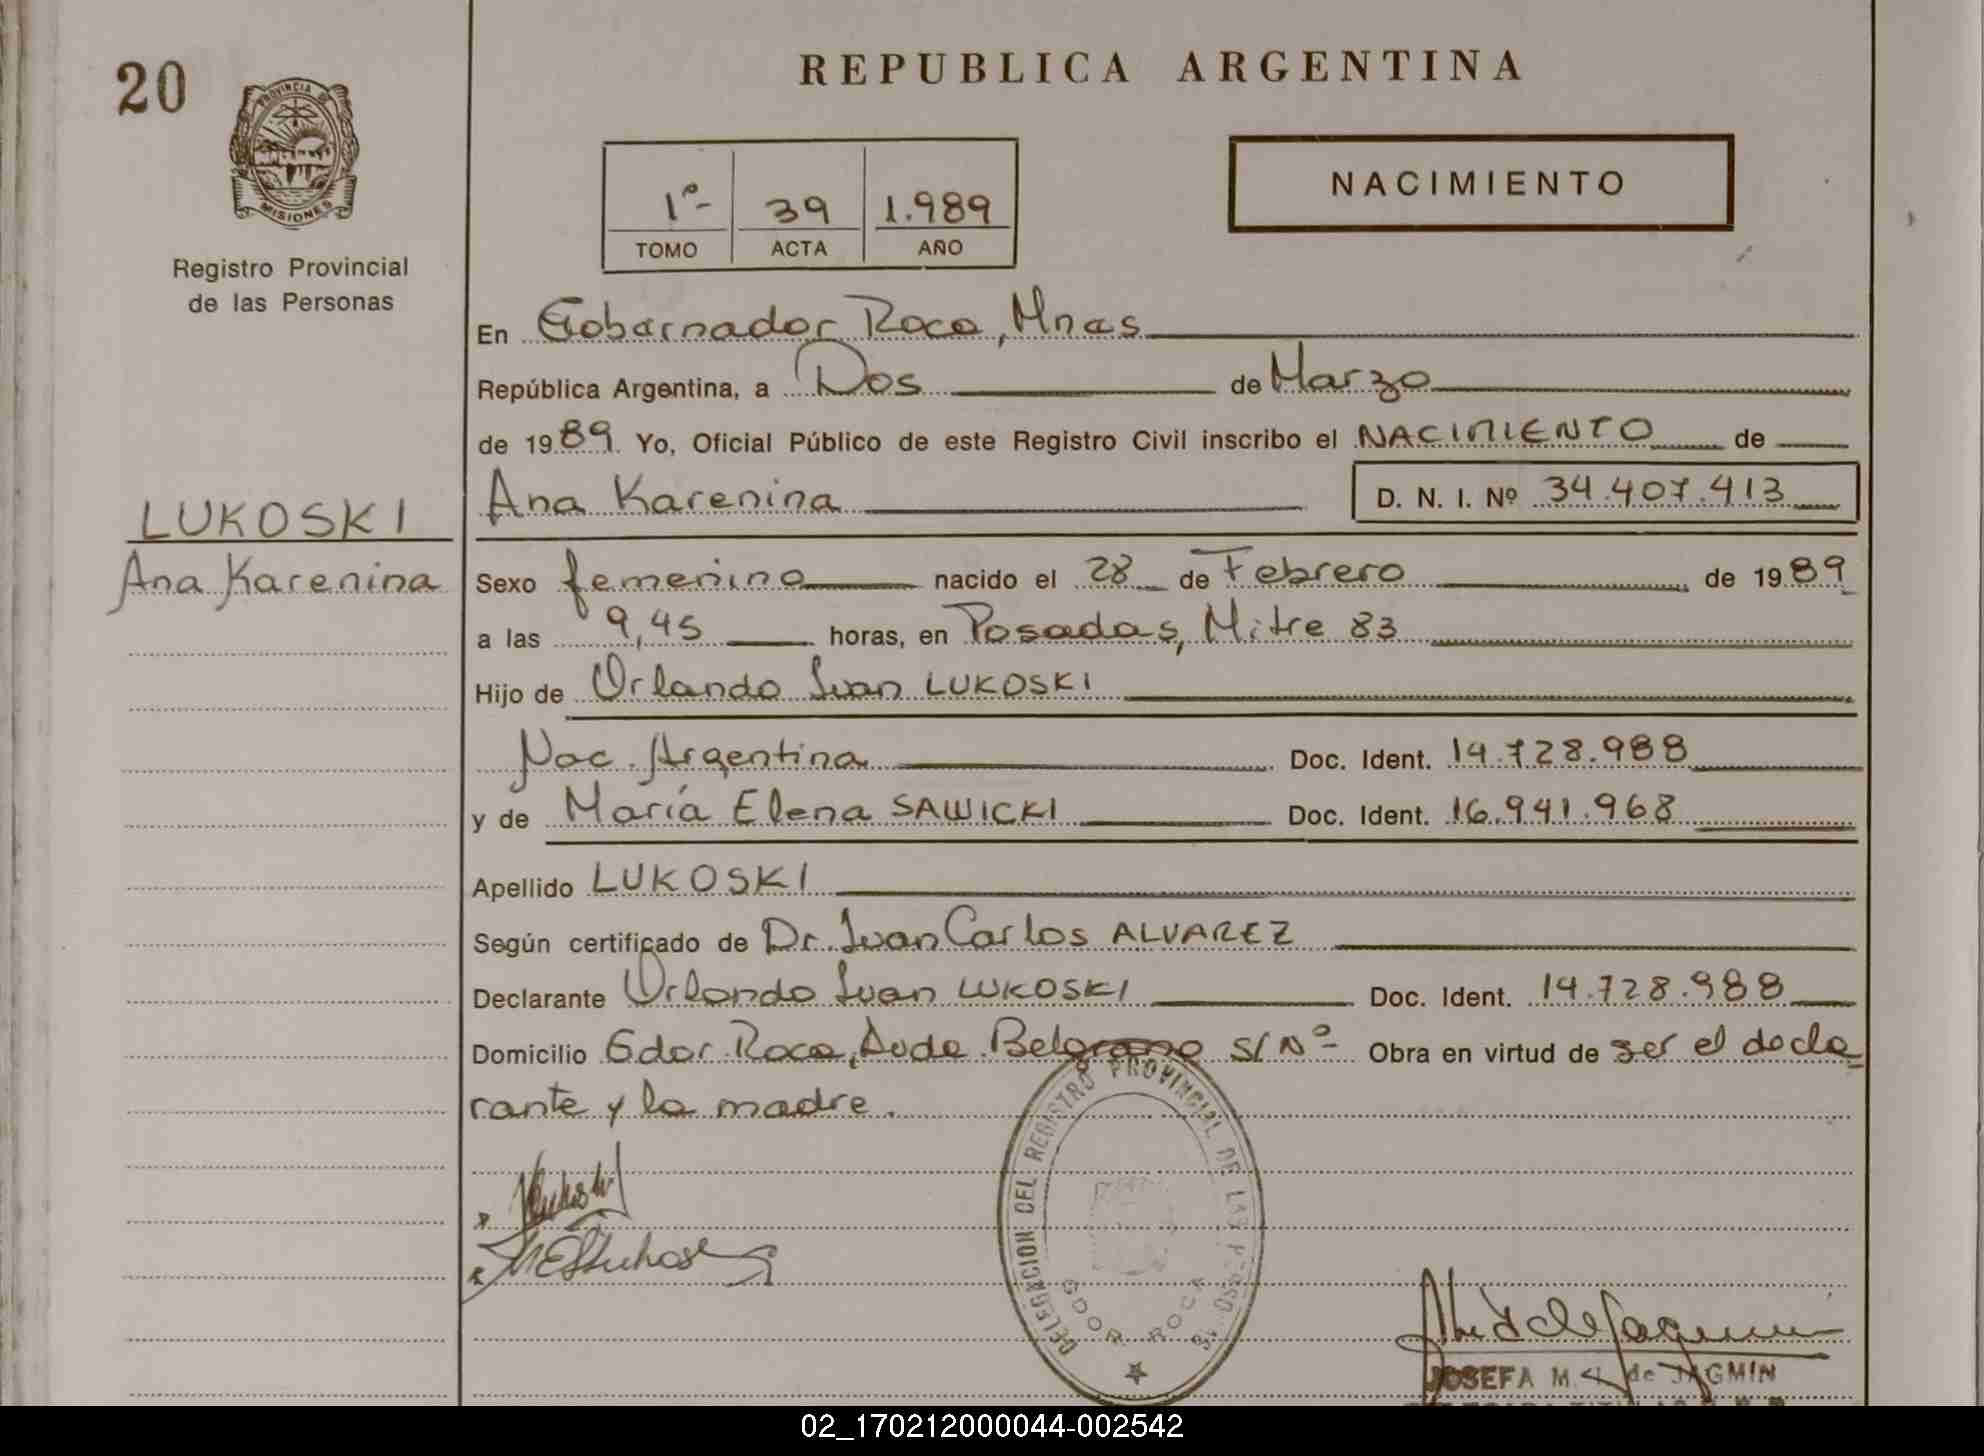 20
PROVINCIA DE
MISIONES
Registro Provincial
de las Personas
REPUBLICA ARGENTINA
1º- 39 1.989
TOMO ACTA AÑO
NACIMIENTO
En Gobernador Roca, Mnes
República Argentina, a Dos de Marzo
de 1989. Yo, Oficial Público de este Registro Civil inscribo el NACIMIENTO de
Ana Karenina D. N. I. Nº 34.407.413
LUKOSKI
Ana Karenina
Sexo femenino nacido el 28 de Febrero de 1989
a las 9,45 horas, en Posadas, Mitre 83
Hijo de Orlando Juan LUKOSKI
Nac. Argentina Doc. Ident. 14.728.988
y de María Elena SAWICKI Doc. Ident. 16.941.968
Apellido LUKOSKI
Según certificado de Dr. Juan Carlos ALVAREZ
Declarante Orlando Juan LUKOSKI Doc. Ident. 14.728.988
Domicilio Gdor. Roca, Avda. Belgrano S/Nº- Obra en virtud de ser el decla
rante y la madre.
DELEGACION DEL REGISTRO PROVINCIAL DE LAS PERSO
GDOR ROCA
JOSEFA M. de JAGMIN
02_170212000044-002542